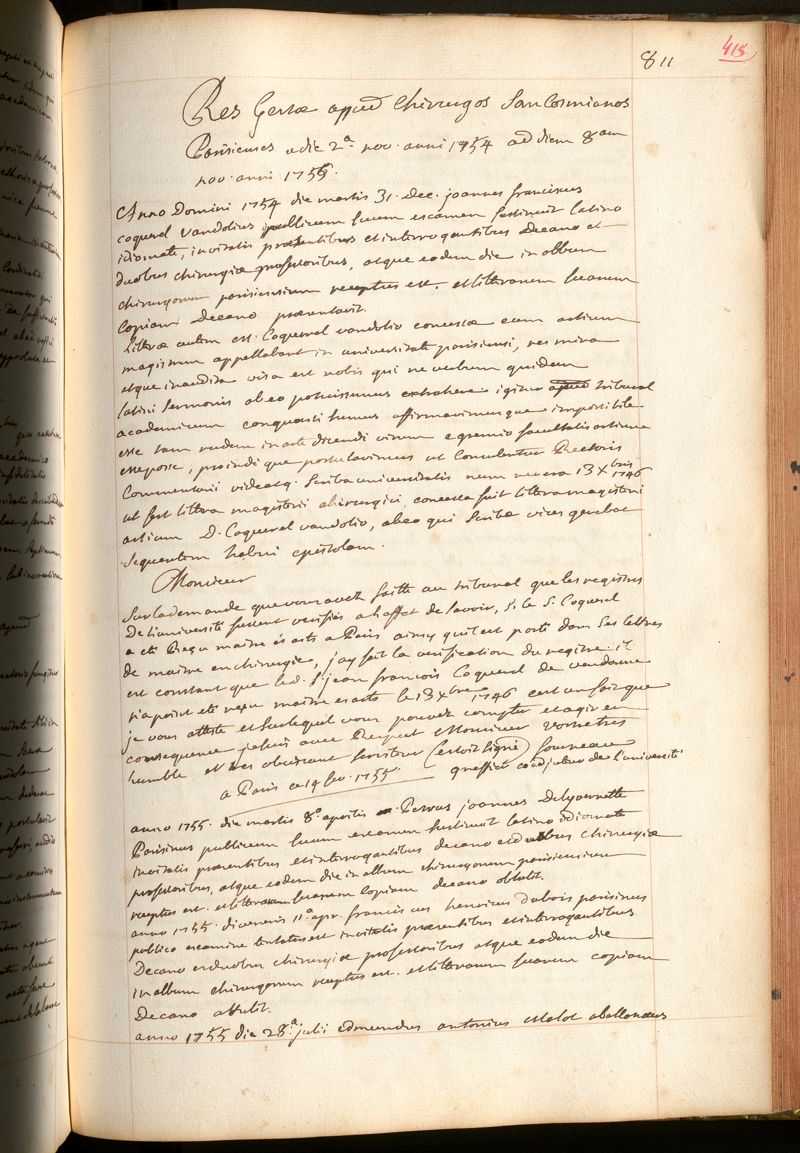 811
418
Res Gestæ apud chirurgos Sancosmianos
Parisienses a die 2.a nov. anni 1754 ad diem 8am
nov. anni 1755.
Anno Domini 1754 die martis 31. Dec. joannes franciscus
coquerel vandolius publicum suum examen sustinuit latino
idiomate, invitatis præsentibus et interrogantibus Decano et
duobus chirurgiæ professoribus, atque eodem die in album
chirurgorum parisiensium receptus est. et litterarum suarum
Copiam Decano præsentavit.
Litteræ autem est. Coquerel vandolio concessæ eum artium
magistrum appellabant in universitate parisiensi, res mira
atque inaudita visa est nobis qui ne verbum quidem
latini Sermonis ab eo potuissemus extrahere igitur apud tribunal
academicum conquesti sumus affirmavimusque impossibile
esse tam rudem in arte dicendi virum e gremio facultatis artium
esse posse, proindique postulavimus ut Consulentur Rectoris
Commentarii videatq. Scriba universitatis num revera 13 Xbris 1746
ut fert littera magisterii chirurgici, concessa fuit littera magisterii
artium D. Coquerel vandolio, ab eo qui Scribæ vices gerebat
Sequentem habui epistolam.
Monsieur
Sur la demande que vous avez faitte au tribunal que les registres
De l'université fussent verifiés a l'effet de savoir, Si le S. Coquerel
a eté Reçu maitre és arts a Paris ainsy qu'il est porté dans Ses lettres
de maitre en chirurgie, j'ay fait la verification du registre. il
est constant que led. S. jean françois Coquerel de vandome
n'a point eté reçu maitre es arts le 13 Xbre 1746 c'est un fait que
je vous atteste et Sur lequel vous pouvez compter et agir en
consequence je suis avec Respect Monsieur votre tres
humble et tres obeissant Serviteur (etoit signé) fourneau
a Paris ce 19 fev. 1755. greffier coadjuteur de l'université
anno 1755. die martis 8.a aprilis Petrus joannes Delavernette
Parisinus publicum suum examen sustinuit latino idiomate
invitatis præsentibus et interrogantibus decano et duobus chirurgiæ
professoribus, atque eodem die in album chirurgorum parisiensium
receptus est. et litterarum suarum Copiam decano obtulit.
anno 1755. die veneris 11.a apr. franciscus henricus Dubois parisinus
publico examine tentatus est invitatis præsentibus et interrogantibus
Decano et duobus chirurgiæ professoribus atque eodem die
in album chirurgorum receptus est. et litterarum suarum copiam
Decano attulit.
anno 1755 die 28.a julii edmundus antonius Malot aballonæus